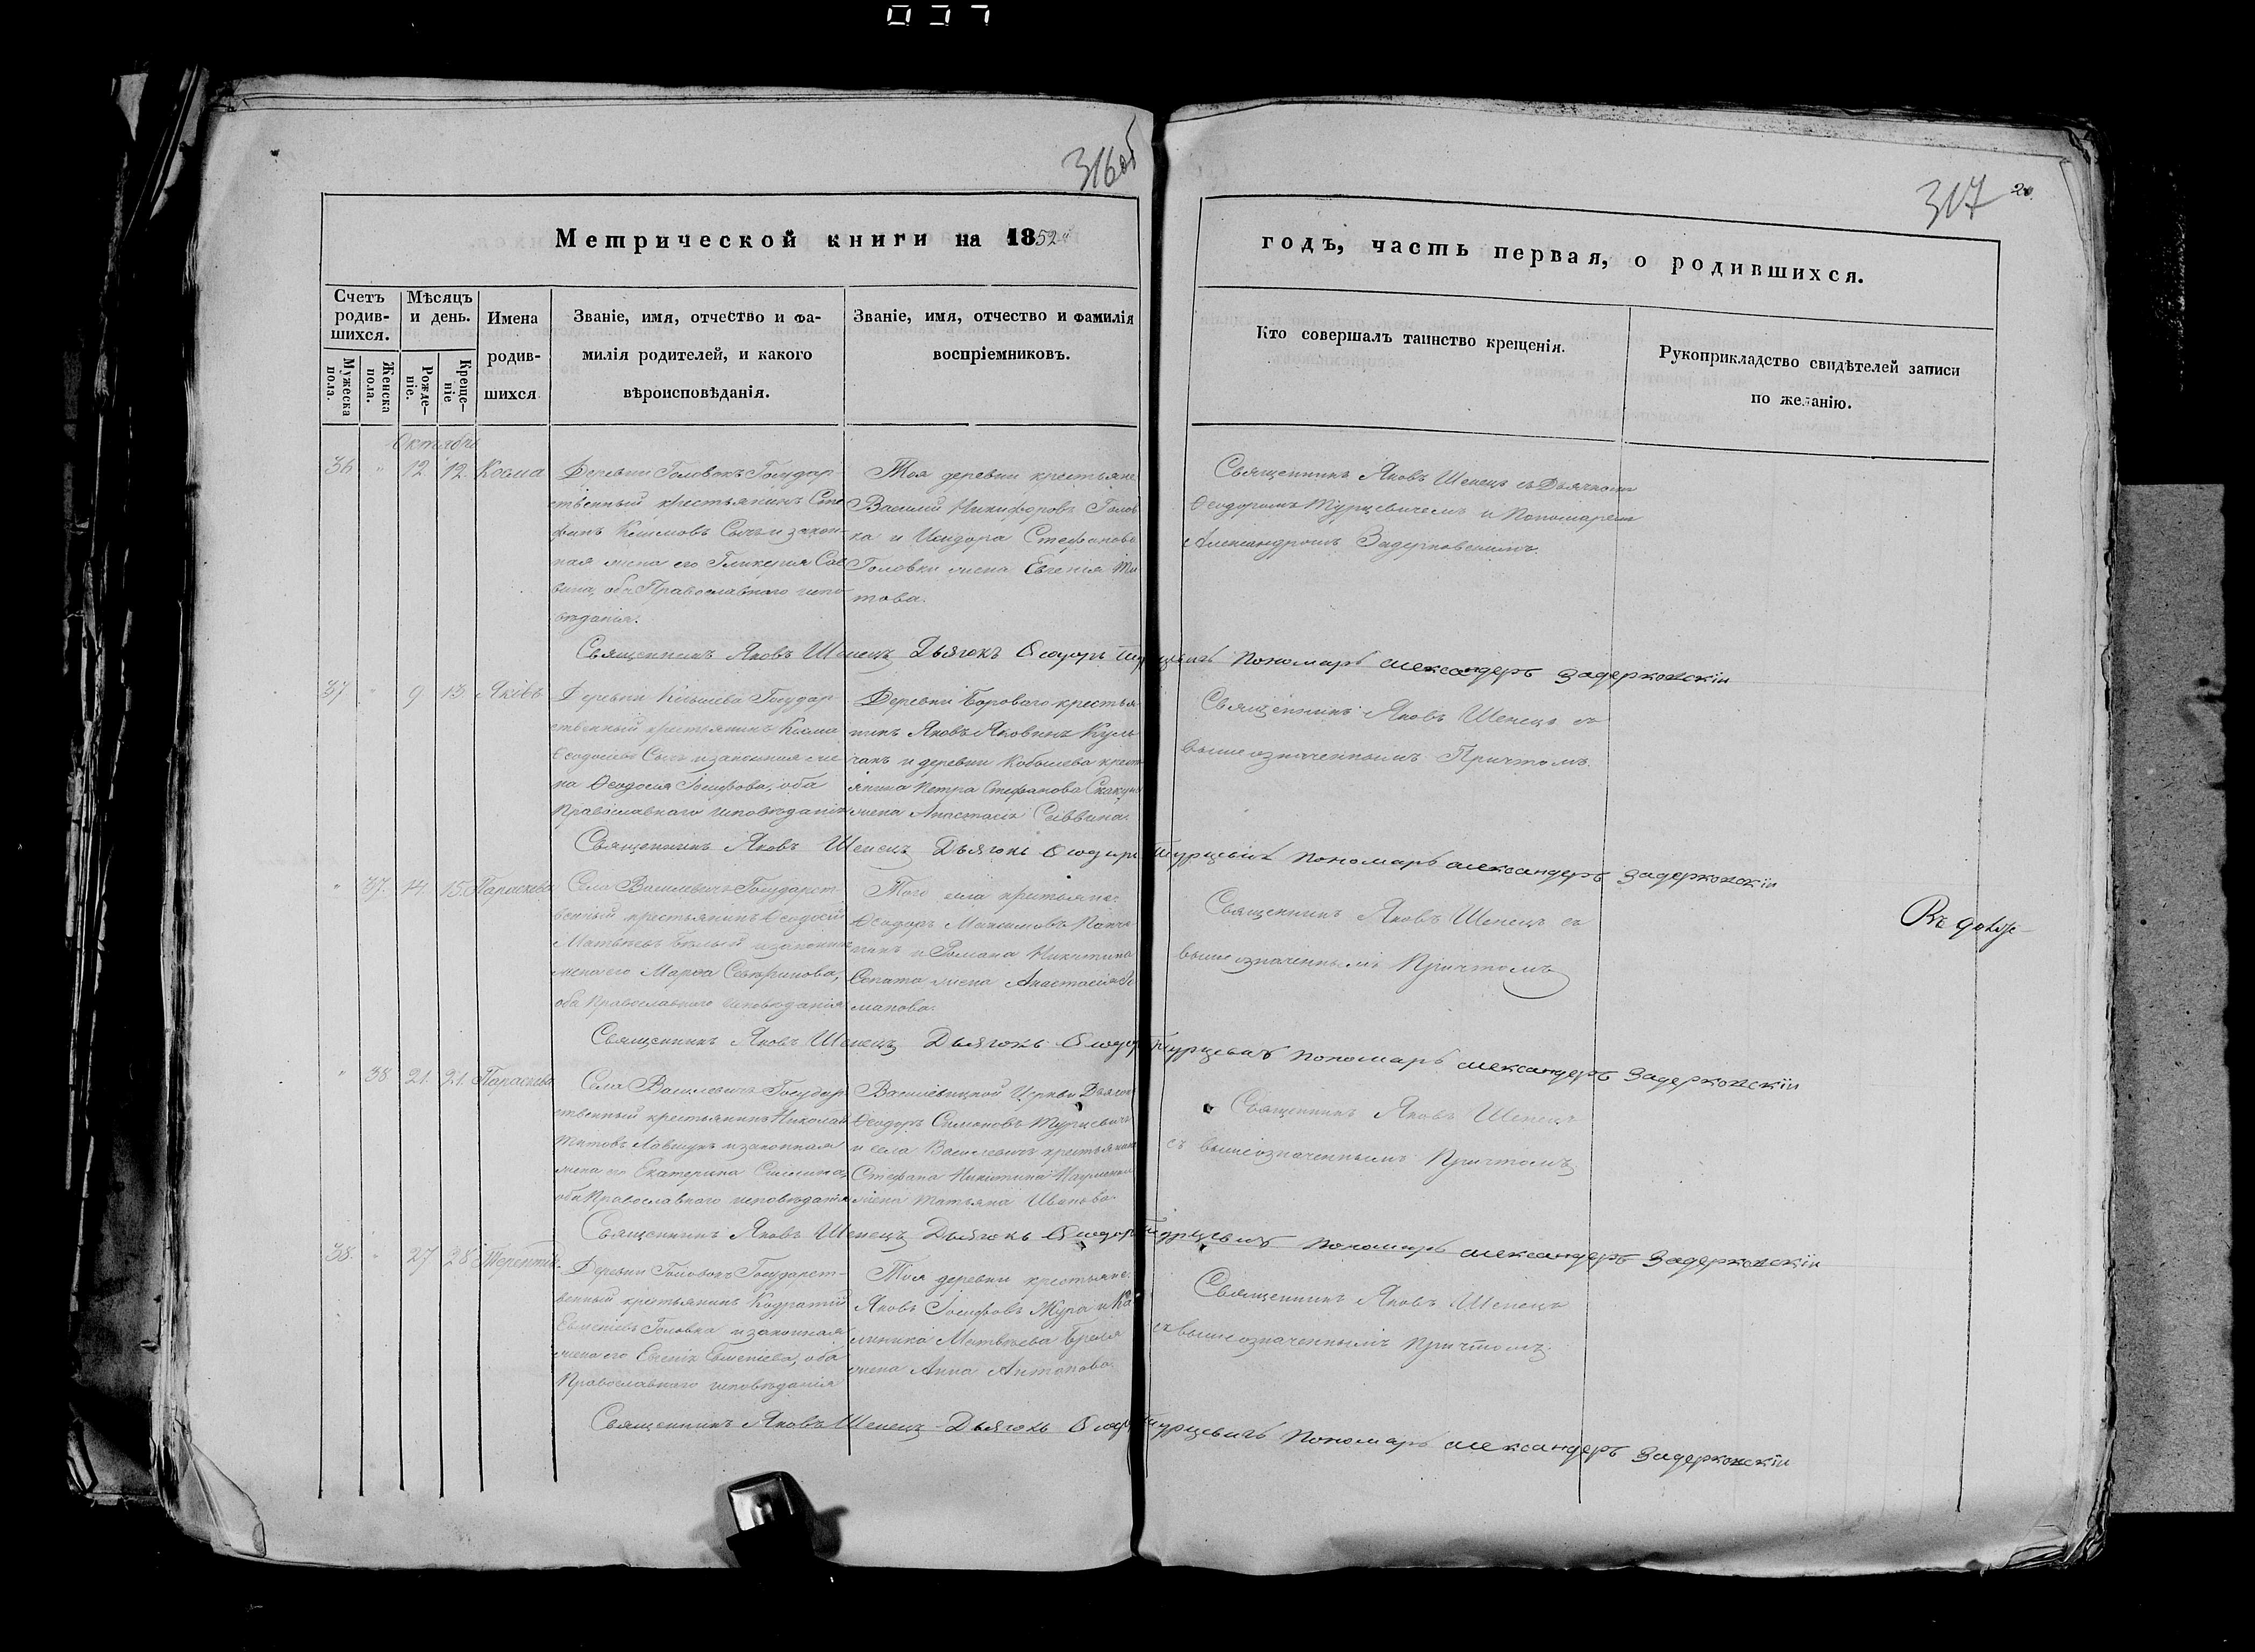 037
316об
317
20.
Метрической книги на 1852й
годъ, часть первая, о родившихся.
Счетъ родив-шихся.
Мѣсяцъ и день.
Мужеска пола.
Женска пола.
Рожде-ніе.
Креще-ніе
Имена
родив-
шихся
Званіе, имя, отчество и фа-
милія родителей, и какого
вѣроисповѣданія.
Званіе, имя, отчество и фамилія
воспріемниковъ.
Кто совершалъ таинство крещенія.
Рукоприкладство свидѣтелей записи
по желанію.
Октябрь
36 " 12 12 Косма
Деревни Головокъ Государ-
ственный крестьянинъ Сте
фанъ и закон-
ная жена его Гликерия Сав
вина, оба Православного испо
вѣданія.
Тоя деревни крестьяне
Василий Никифоровъ Голов
ка и Исидора Стефанова
Головки жена Евгенія Ти
това.
Священникъ Яковъ Шенецъ съ Дьячкомъ
Ѳеодоромъ Турцевичемъ и Пономаремъ
Александромъ Задерковскимъ.
Священникъ Яковъ Шенецъ Дьячокъ Ѳеодоръ Турцевичъ Пономарь Александеръ Задерковскіи
37 " 9 13 Яковъ
Деревни Кобылева Государ-
ственный крестьянинъ Косма
и законная же
на Ѳеодосия Іосифова, оба
Православнаго исповѣданія
Деревни Борового крестья
нинъ Яковъ Яковинъ Куль
чанъ и деревни Кобылева крест
янина Петра Стефанова Скакуна
жена Анастасія Саввина.
Священникъ Яковъ Шенецъ съ
вышеозначеннымъ Причтомъ.
Священникъ Яковъ Шенецъ Дьячокъ Ѳеодоръ Турцевичъ Пономарь Александеръ Задерковскіи
" 37. 14. 15. Параскева
Села Василевичъ Государст-
венный крестьянинъ Ѳеодосій
Матвѣевъ Бѣлый и законная
жена его Марфа Севѣринова,
оба Православнаго исповѣданія
Того села крестьяне:
Ѳеодоръ Максимовъ
и Романа Никитина
жена Анастасія Ро
манова.
Священникъ Яковъ Шенецъ съ
вышеозначеннымъ Причтомъ
Священникъ Яковъ Шенецъ Дьячокъ Ѳеодоръ Турцевичъ Пономарь Александеръ Задерковскіи
" 38 21. 21. Параскева
Села Василевичъ Государ
ственный крестьянинъ Николай
Титовъ и законная
жена его Екатерина
оба Православнаго исповѣданія
Василевицкой Церкви Дьячокъ
Ѳеодоръ Симоновъ Турцевичъ
и села Василевичъ крестьянина
Стефана Никитина Науменка
жена Татьяна Иванова.
Священникъ Яковъ Шенецъ
съ вышеозначеннымъ Причтомъ
Священникъ Яковъ Шенецъ Дьячокъ Ѳеодоръ Турцевичъ Пономарь Александеръ Задерковскіи
38. " 27 28 Терентій
Деревни Головокъ Государст-
венный крестьянинъ Кодратій
Евменіевъ Головка и законная
жена его Евгенія Евменіева, оба
Православнаго исповѣданія
Тоя деревни крестьяне:
Яковъ Іосифовъ Жура и Ка
линика Матвѣева
жена Анна Антонова
Священникъ Яковъ Шенецъ
съ вышеозначеннымъ Причтомъ.
Священникъ Яковъ Шенецъ Дьячокъ Ѳеодоръ Турцевичъ Пономарь Александеръ Задерковскіи